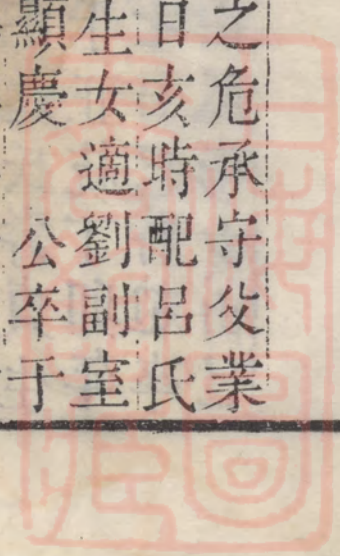 之危承守父業
日亥時配呂氏
生女適劉副室
顯慶　公卒于